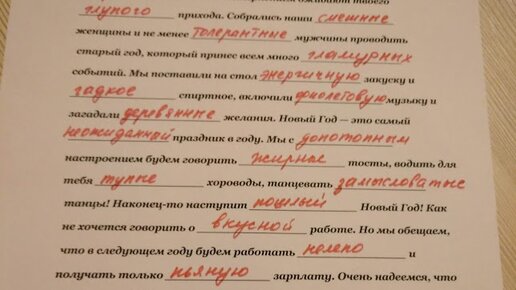 глупого прихода. Собрались наши смешные
женщины и не менее толерантные мужчины проводить
старый год, который принес всем много гламурных
событий. Мы поставили на стол энергичную закуску и
гадкое спиртное, включили фиолетовую музыку и
загадали деревянные желания. Новый Год — это самый
неожиданный праздник в году. Мы с допотопным
настроением будем говорить жирные тосты, водить для
тебя тупые хороводы, танцевать замысловатые
танцы! Наконец-то наступит пошлый Новый Год! Как
не хочется говорить о вкусной работе. Но мы обещаем,
что в следующем году будем работать нелепо и
получать только пьяную зарплату. Очень надеемся, что